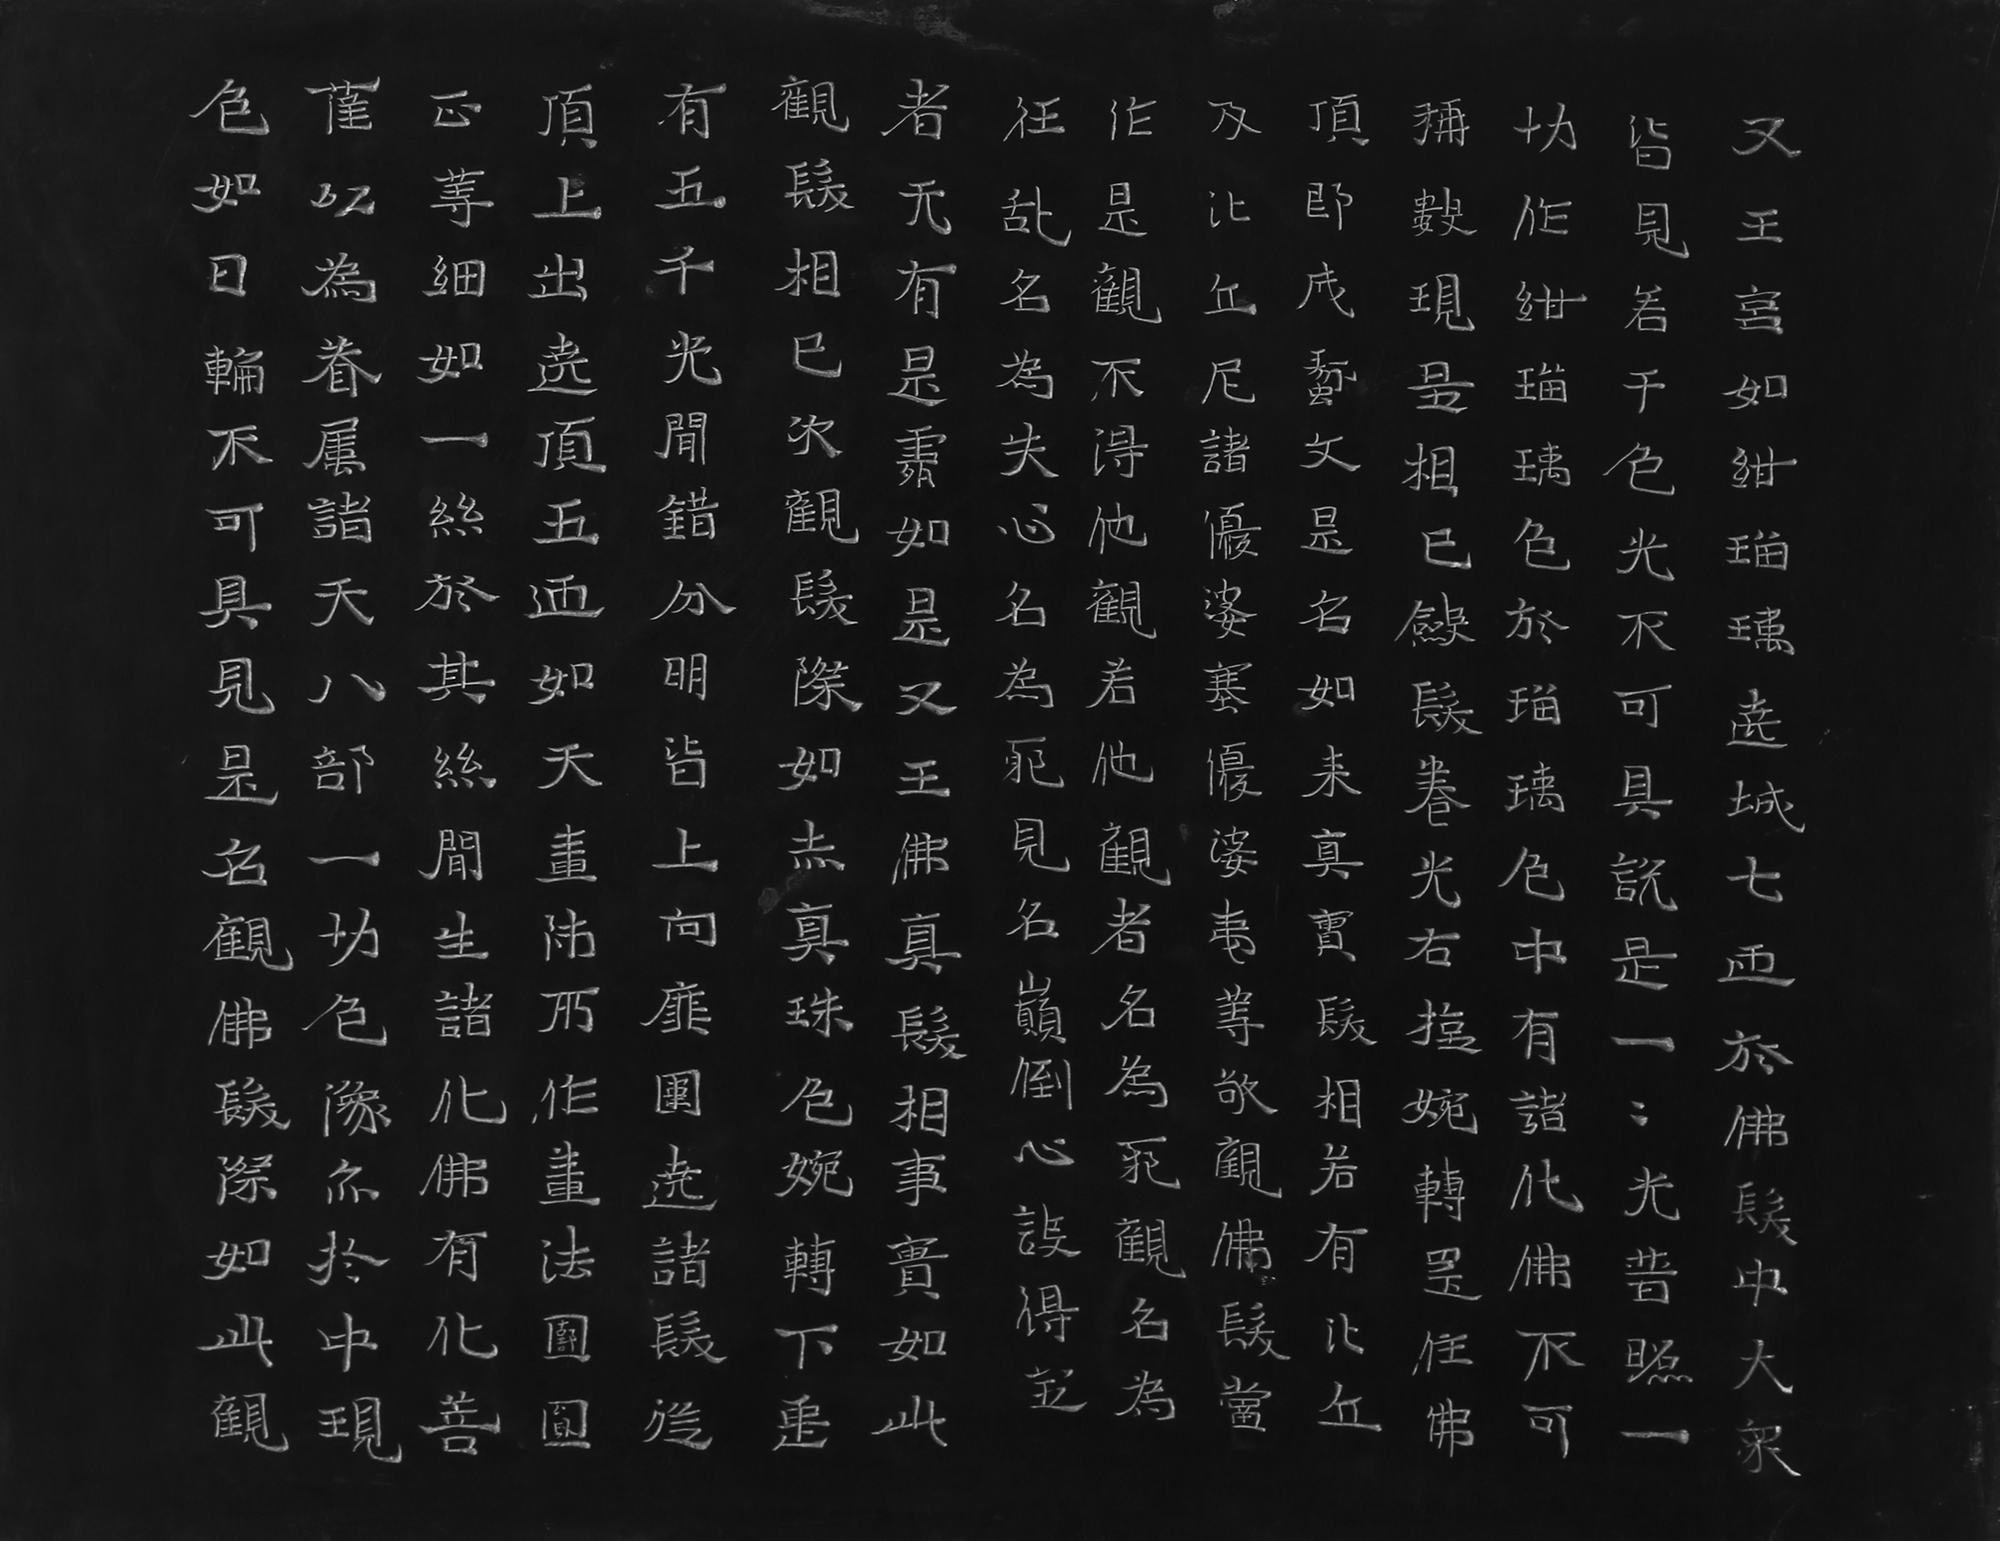 又王宮如紺瑠璃遶城七迊於佛髮中大衆
皆見若干色光不可具說是一〻光普照一
切作紺瑠璃色於瑠璃色中有諸化佛不可
稱數現是相已歛髮卷光右旋婉轉還住佛
頂即成蠡文是名如来真實髮相若有比丘
及比丘尼諸優婆塞優婆夷等欲觀佛髮當
作是觀不得他觀若他觀者名為邪觀名為
狂乱名為失心名為邪見名巔倒心設得定
者无有是處如是又王佛真髮相事實如此
觀髮相已次觀髮際如赤真珠色婉轉下垂
有五千光間錯分明皆上向靡圍遶諸髮從
頂上出遶頂五迊如天畫師所作畫法團圓
正等細如一絲於其絲間生諸化佛有化菩
薩以為眷屬諸天八部一切色像亦於中現
色如日輪不可具見是名觀佛髮際如此觀